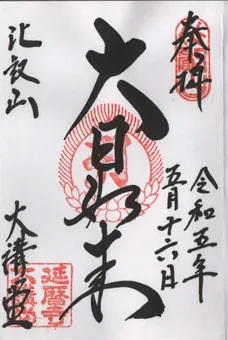 奉拝
令和五年
五月十六日
大日如来
比叡山
大講堂
延暦寺